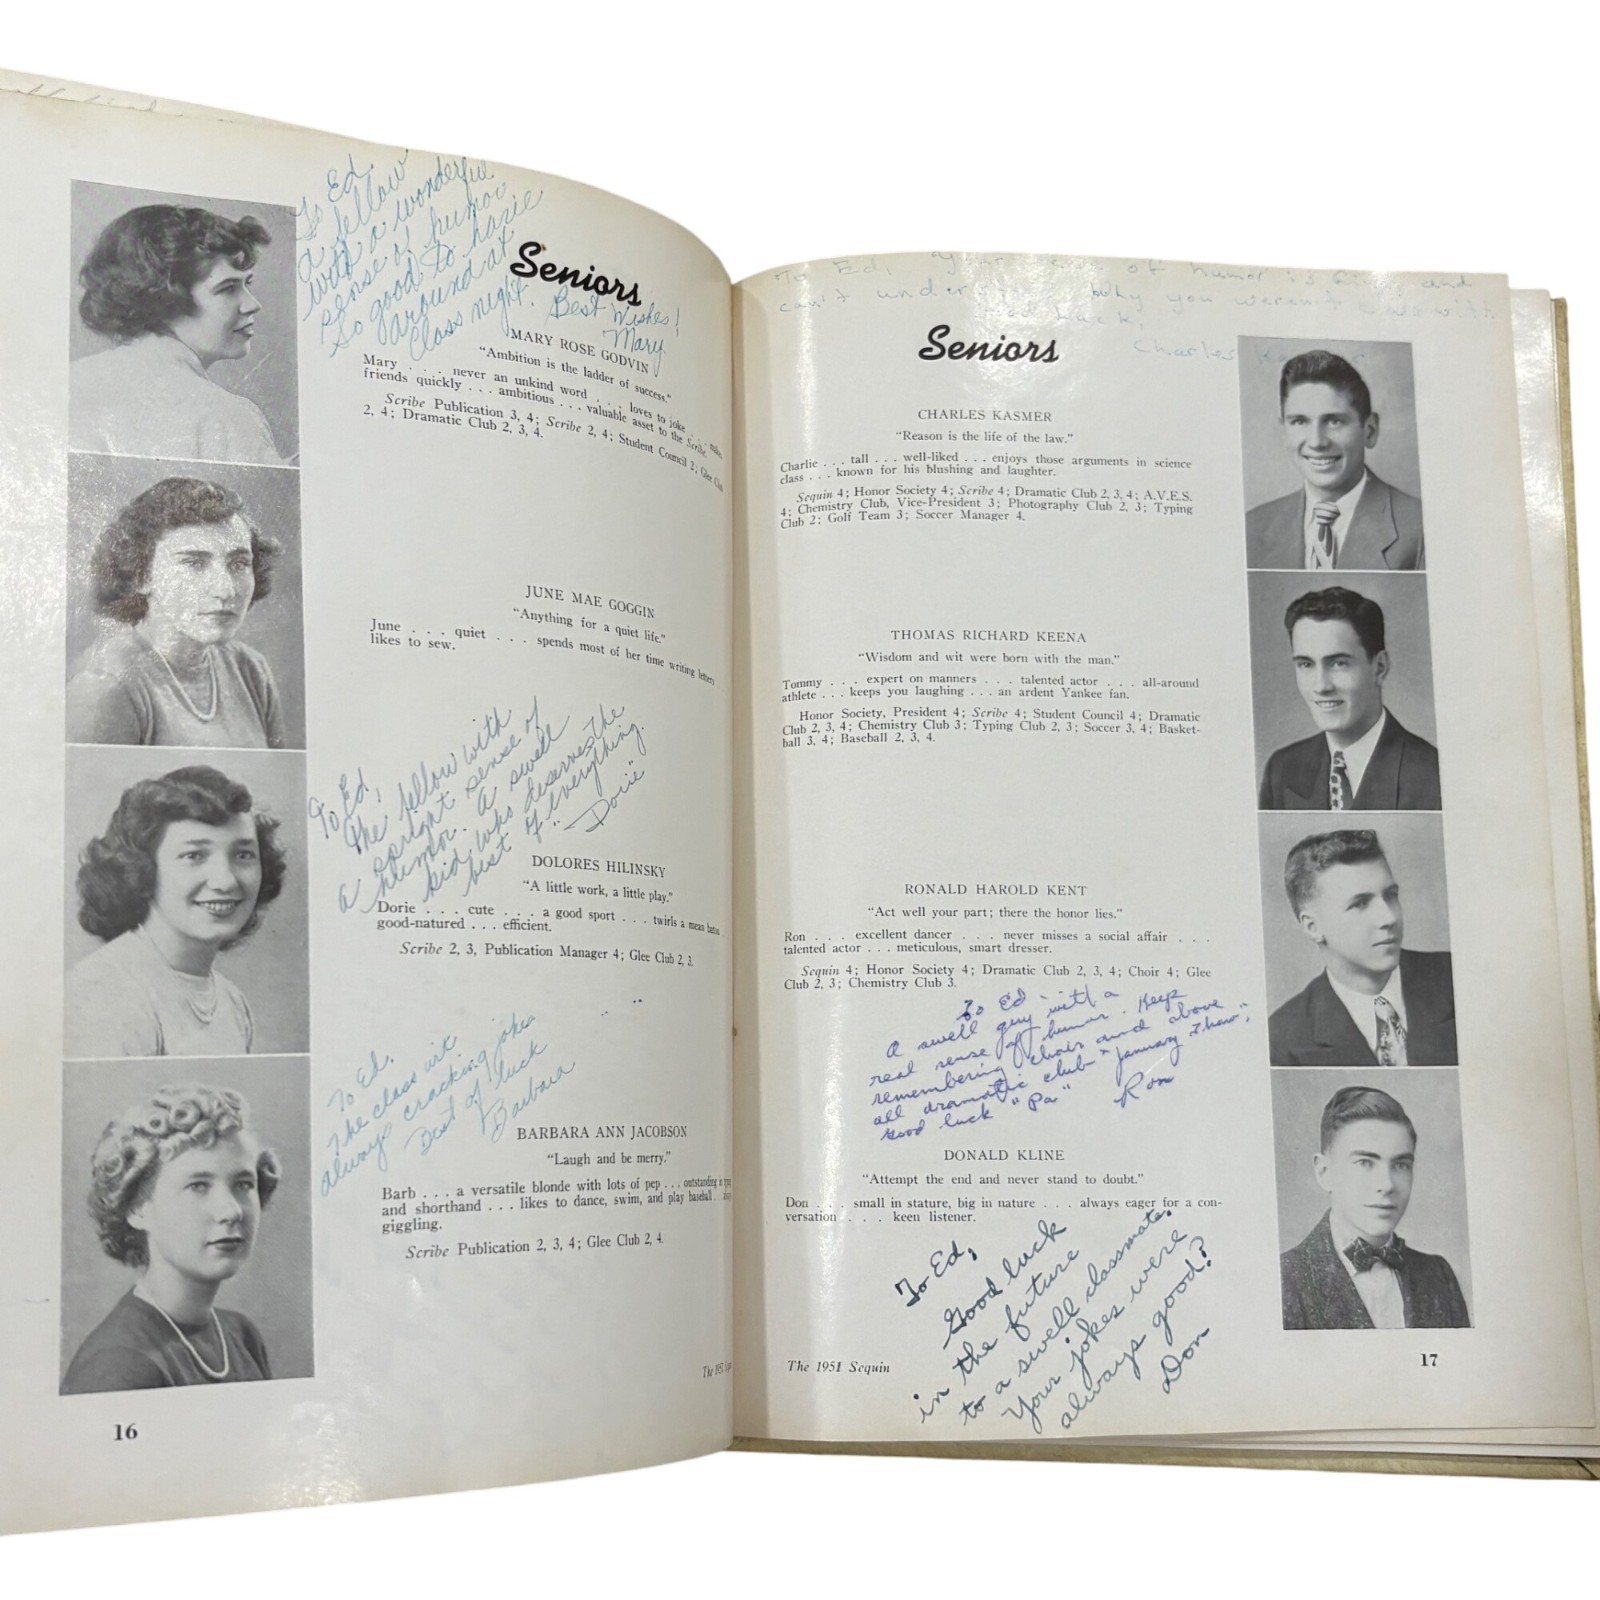 To Ed,
a fellow
with a wonderful
sense of humor
So good to have
around at
Class night. Best Wishes!
Mary
Seniors
MARY ROSE GODVIN
"Ambition is the ladder of success."
Mary . . . never an unkind word . . . loves to joke . . . makes
friends quickly . . . ambitious . . . valuable asset to the Scribe.
Scribe Publication 3, 4; Scribe 2, 4; Student Council 2; Glee Club
2, 4; Dramatic Club 2, 3, 4.
JUNE MAE GOGGIN
"Anything for a quiet life."
June . . . quiet . . . spends most of her time writing letters
likes to sew.
To Ed,
The fellow with
a spright sense of
humor. A swell
kid who deserves the
best of everything.
"Dorie"
DOLORES HILINSKY
"A little work, a little play."
Dorie . . . cute . . . a good sport . . . twirls a mean baton
good-natured . . . efficient.
Scribe 2, 3, Publication Manager 4; Glee Club 2, 3.
To Ed.
The class wit
always cracking jokes
Best of luck
Barbara
BARBARA ANN JACOBSON
"Laugh and be merry."
Barb . . . a versatile blonde with lots of pep . . . outstanding in
and shorthand . . . likes to dance, swim, and play baseball . . .
giggling.
Scribe Publication 2, 3, 4; Glee Club 2, 4.
The 1951
16
To Ed, Your sense of humor is fine and
can't understand why you weren't
Good Luck,
Charles
Seniors
CHARLES KASMER
"Reason is the life of the law."
Charlie . . . tall . . . well-liked . . . enjoys those arguments in science
class . . . known for his blushing and laughter.
Sequin 4; Honor Society 4; Scribe 4; Dramatic Club 2, 3, 4; A.V.E.S.
4; Chemistry Club, Vice-President 3; Photography Club 2, 3; Typing
Club 2; Golf Team 3; Soccer Manager 4.
THOMAS RICHARD KEENA
"Wisdom and wit were born with the man."
Tommy . . . expert on manners . . . talented actor . . . all-around
athlete . . . keeps you laughing . . . an ardent Yankee fan.
Honor Society, President 4; Scribe 4; Student Council 4; Dramatic
Club 2, 3, 4; Chemistry Club 3; Typing Club 2, 3; Soccer 3, 4; Basket-
ball 3, 4; Baseball 2, 3, 4.
RONALD HAROLD KENT
"Act well your part; there the honor lies."
Ron . . . excellent dancer . . . never misses a social affair . . .
talented actor . . . meticulous, smart dresser.
Sequin 4; Honor Society 4; Dramatic Club 2, 3, 4; Choir 4; Glee
Club 2, 3; Chemistry Club 3.
To Ed
A swell guy with a
real sense of humor. Keep
remembering choir and above
all dramatic club + "January Thaw".
Good luck "Pa"
Ron
DONALD KLINE
"Attempt the end and never stand to doubt."
Don . . . small in stature, big in nature . . . always eager for a con-
versation . . . keen listener.
To Ed,
Good luck
in the future
to a swell classmate.
Your jokes were
always good?
Don
The 1951 Sequin
17